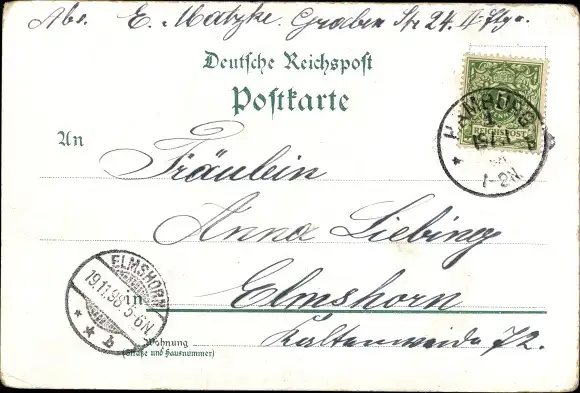 Abs. E. Matzke. Graben Str 24. II. Etge.
Deutsche Reichspost
Postkarte
REICHSPOST
HAMBURG
1.
7-2N
An Fräulein
Anna Liebing
ELMSHORN
19.11.98.5-6N
b
in Elmshorn
Wohnung
(Straße und Hausnummer)
Kaltenweide 72.